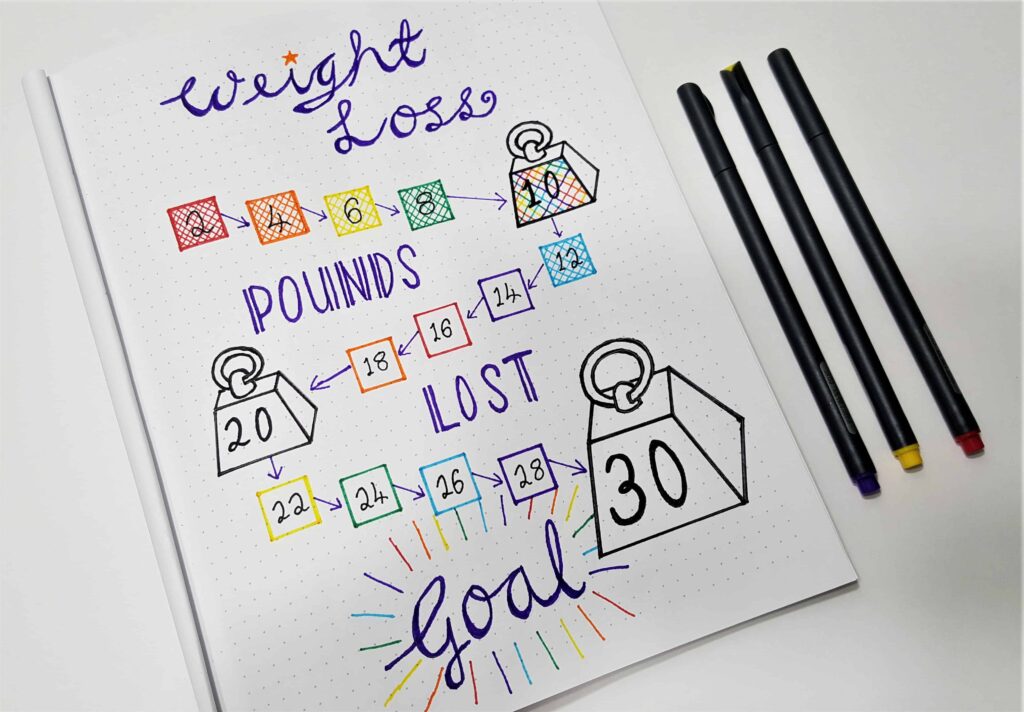 Weight
Loss
2 4 6 8 10
12
POUNDS
14
16
18
20
LOST
22 24 26 28 30
Goal